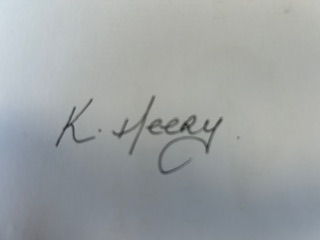 K. Heery.